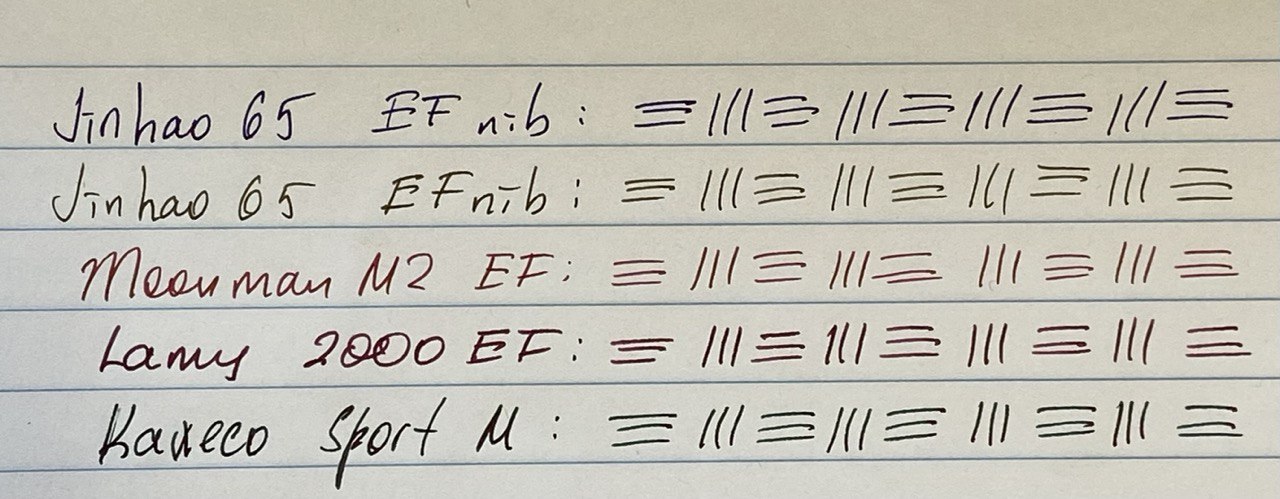 Jinhao 65 EF nib : ≡ ||| ≡ ||| ≡ ||| ≡ ||| ≡
Jinhao 65 EF nib : ≡ ||| ≡ ||| ≡ ||| ≡ ||| ≡
Moonman M2 EF : ≡ ||| ≡ ||| ≡ ||| ≡ ||| ≡
Lamy 2000 EF : ≡ ||| ≡ ||| ≡ ||| ≡ ||| ≡
Kaweco Sport M : ≡ ||| ≡ ||| ≡ ||| ≡ ||| ≡